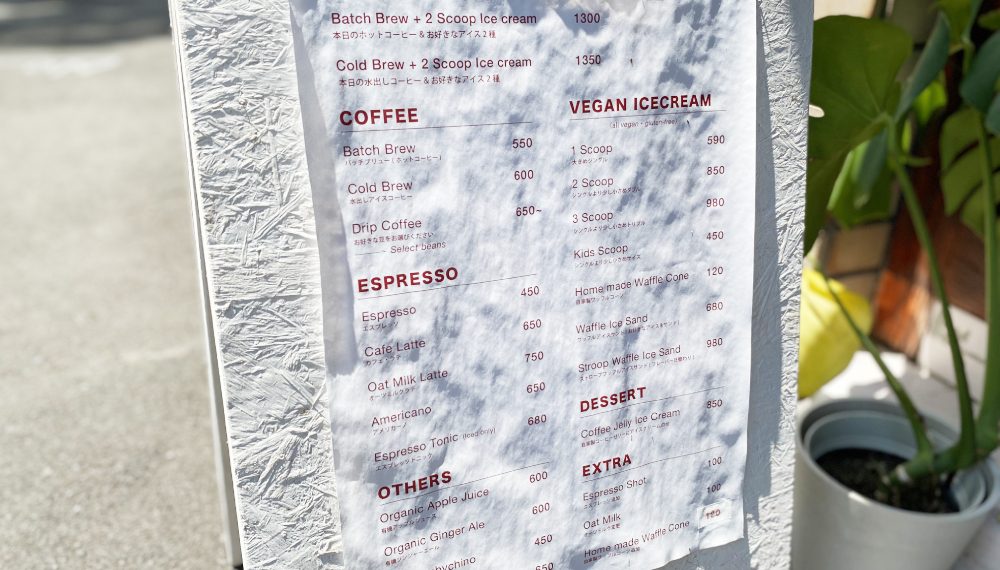 Batch Brew + 2 Scoop Ice cream 1300
本日のホットコーヒー & お好きなアイス2種
Cold Brew + 2 Scoop Ice cream 1350
本日の水出しコーヒー & お好きなアイス2種
COFFEE
Batch Brew 550
バッチブリュー(ホットコーヒー)
Cold Brew 600
水出しアイスコーヒー
Drip Coffee 650~
お好きな豆をお選びください
Select beans
ESPRESSO
Espresso 450
エスプレッソ
Cafe Latte 650
カフェラテ
Oat Milk Latte 750
オーツミルクラテ
Americano 650
アメリカーノ
Espresso Tonic (Iced only) 680
エスプレッソトニック
OTHERS
Organic Apple Juice 600
有機アップルジュース
Organic Ginger Ale 600
有機ジンジャーエール
450
VEGAN ICECREAM
(all vegan・gluten-free)
1 Scoop 590
大きめシングル
2 Scoop 850
シングルより少し小さめダブル
3 Scoop 980
シングルより少し小さめトリプル
Kids Scoop 450
シングルより少し小さめサイズ
Home made Waffle Cone 120
自家製ワッフルコーン
Waffle Ice Sand 680
Stroop Waffle Ice Sand 980
DESSERT
Coffee Jelly Ice Cream 850
EXTRA
Espresso Shot 100
エスプレッソ追加
Oat Milk 100
オーツミルク変更
Home made Waffle Cone
自家製ワッフルコーン追加